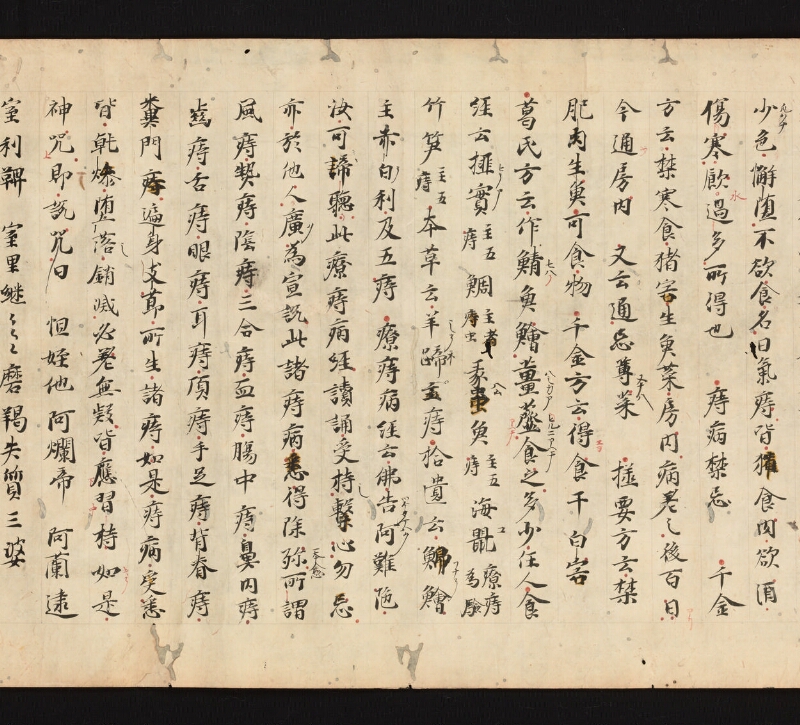 少色懈堕不欲食名曰氣痔皆獖食肉飲酒
傷寒飲過多所得也 痔病禁忌 千金
方云禁寒食猪害生魚菜房内病差之後百日
今通房内 文云通忌蓴菜 撮要方云禁
肥肉生魚可食物 千金方云得食干白害
葛氏方云作鯖魚鱠薑虀食之多少任人食
經云榧實主五痔 鯛主痔虫 魚主五痔 海鼠療痔為驗
竹笋主五痔 本草云羊蹄主痔 拾遺云鯽鱠
主赤白利及五痔 療痔病經云佛告阿難陁
汝可諦聽此療痔病經讀誦受持繫心勿忘
亦於他人廣為宣説此諸痔病悉得除殄所謂
風痔熱痔陰痔三合痔血痔腸中痔鼻内痔
齒痔舌痔眼痔耳痔頂痔手足痔背脊痔
糞門痔遍身支莭所生諸痔如是痔病受悉
皆乹燥堕落銷滅必差無疑皆應習持如是
神咒即説咒曰 怛姪他阿爛帝 阿蘭逮
室利鞞 室里継々々磨羯失質三婆